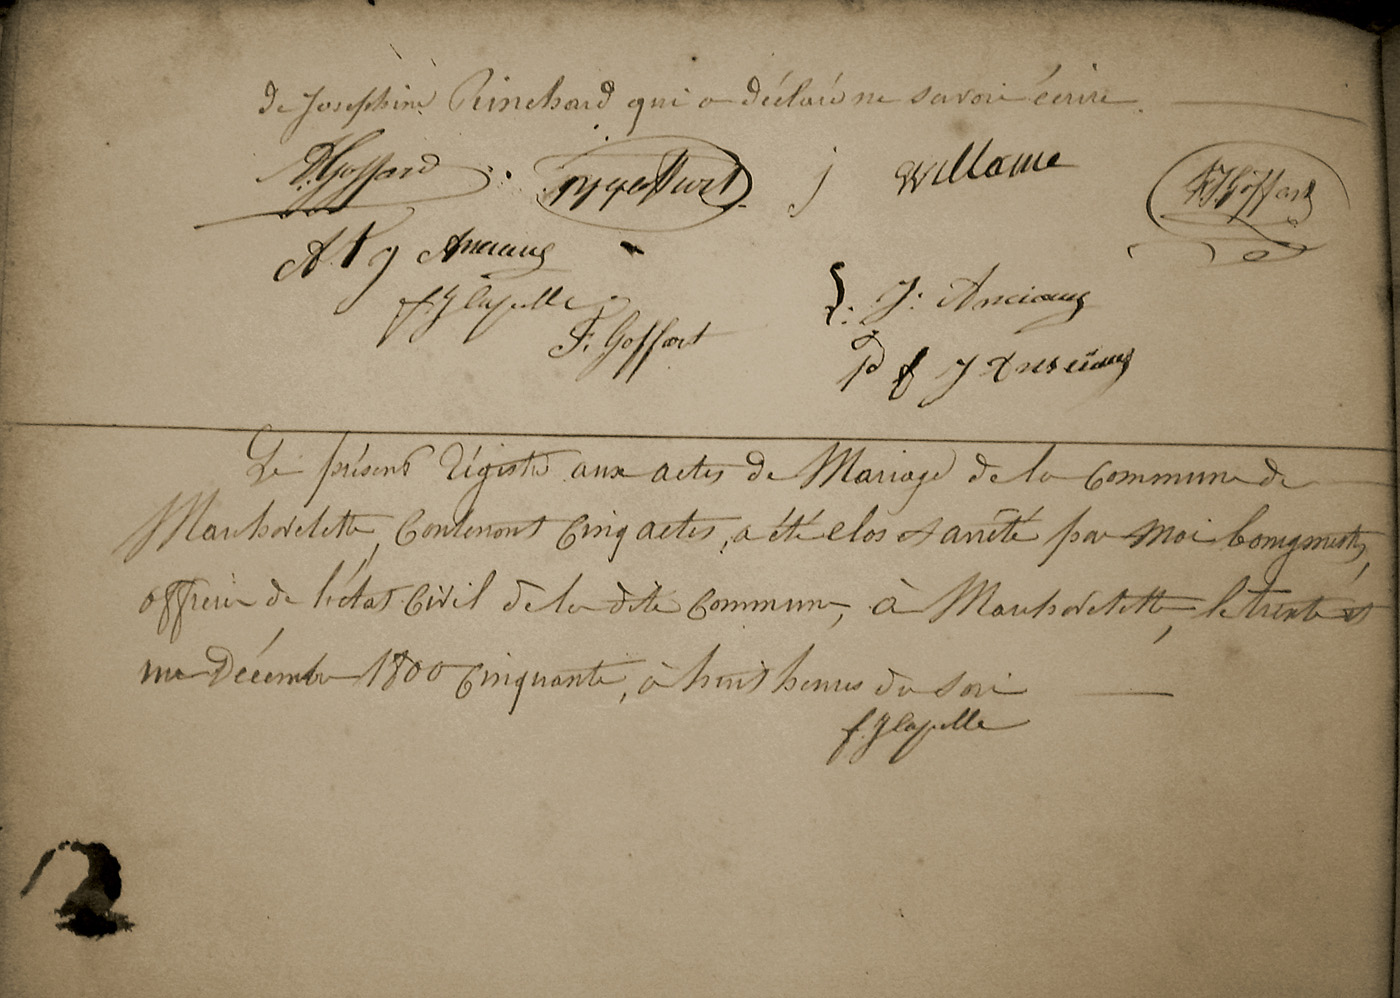 de Josephine Pinchard qui a déclaré ne savoir écrire.
Goffard
J Willame
Goffart
A. J Anciaux
f. J Capelle
J. Anciaux
F. Goffart
f J Anciaux
Le présent régistre aux actes de Mariage de la commune de
Marchovelette, contenant cinq actes, a été clos et arrêté par moi bourgmestre,
officier de l'état civil de la dite commune, à Marchovelette, le trente et
une Décembre 1800 cinquante, à huit heures du soir
f. J Capelle